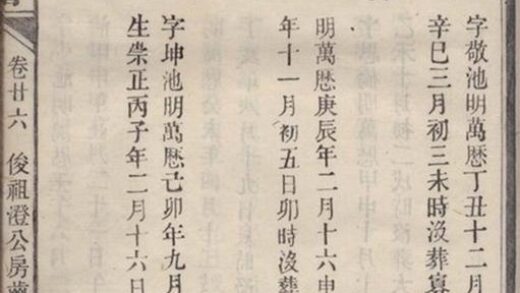 字敬池明萬歷丁丑十二月
辛巳三月初三未時沒葬
明萬歷庚辰年二月十六申
年十一月初五日卯時沒葬
字坤池明萬歷己卯年九月
生崇正丙子年二月十六日
卷廿六 俊祖澄公房